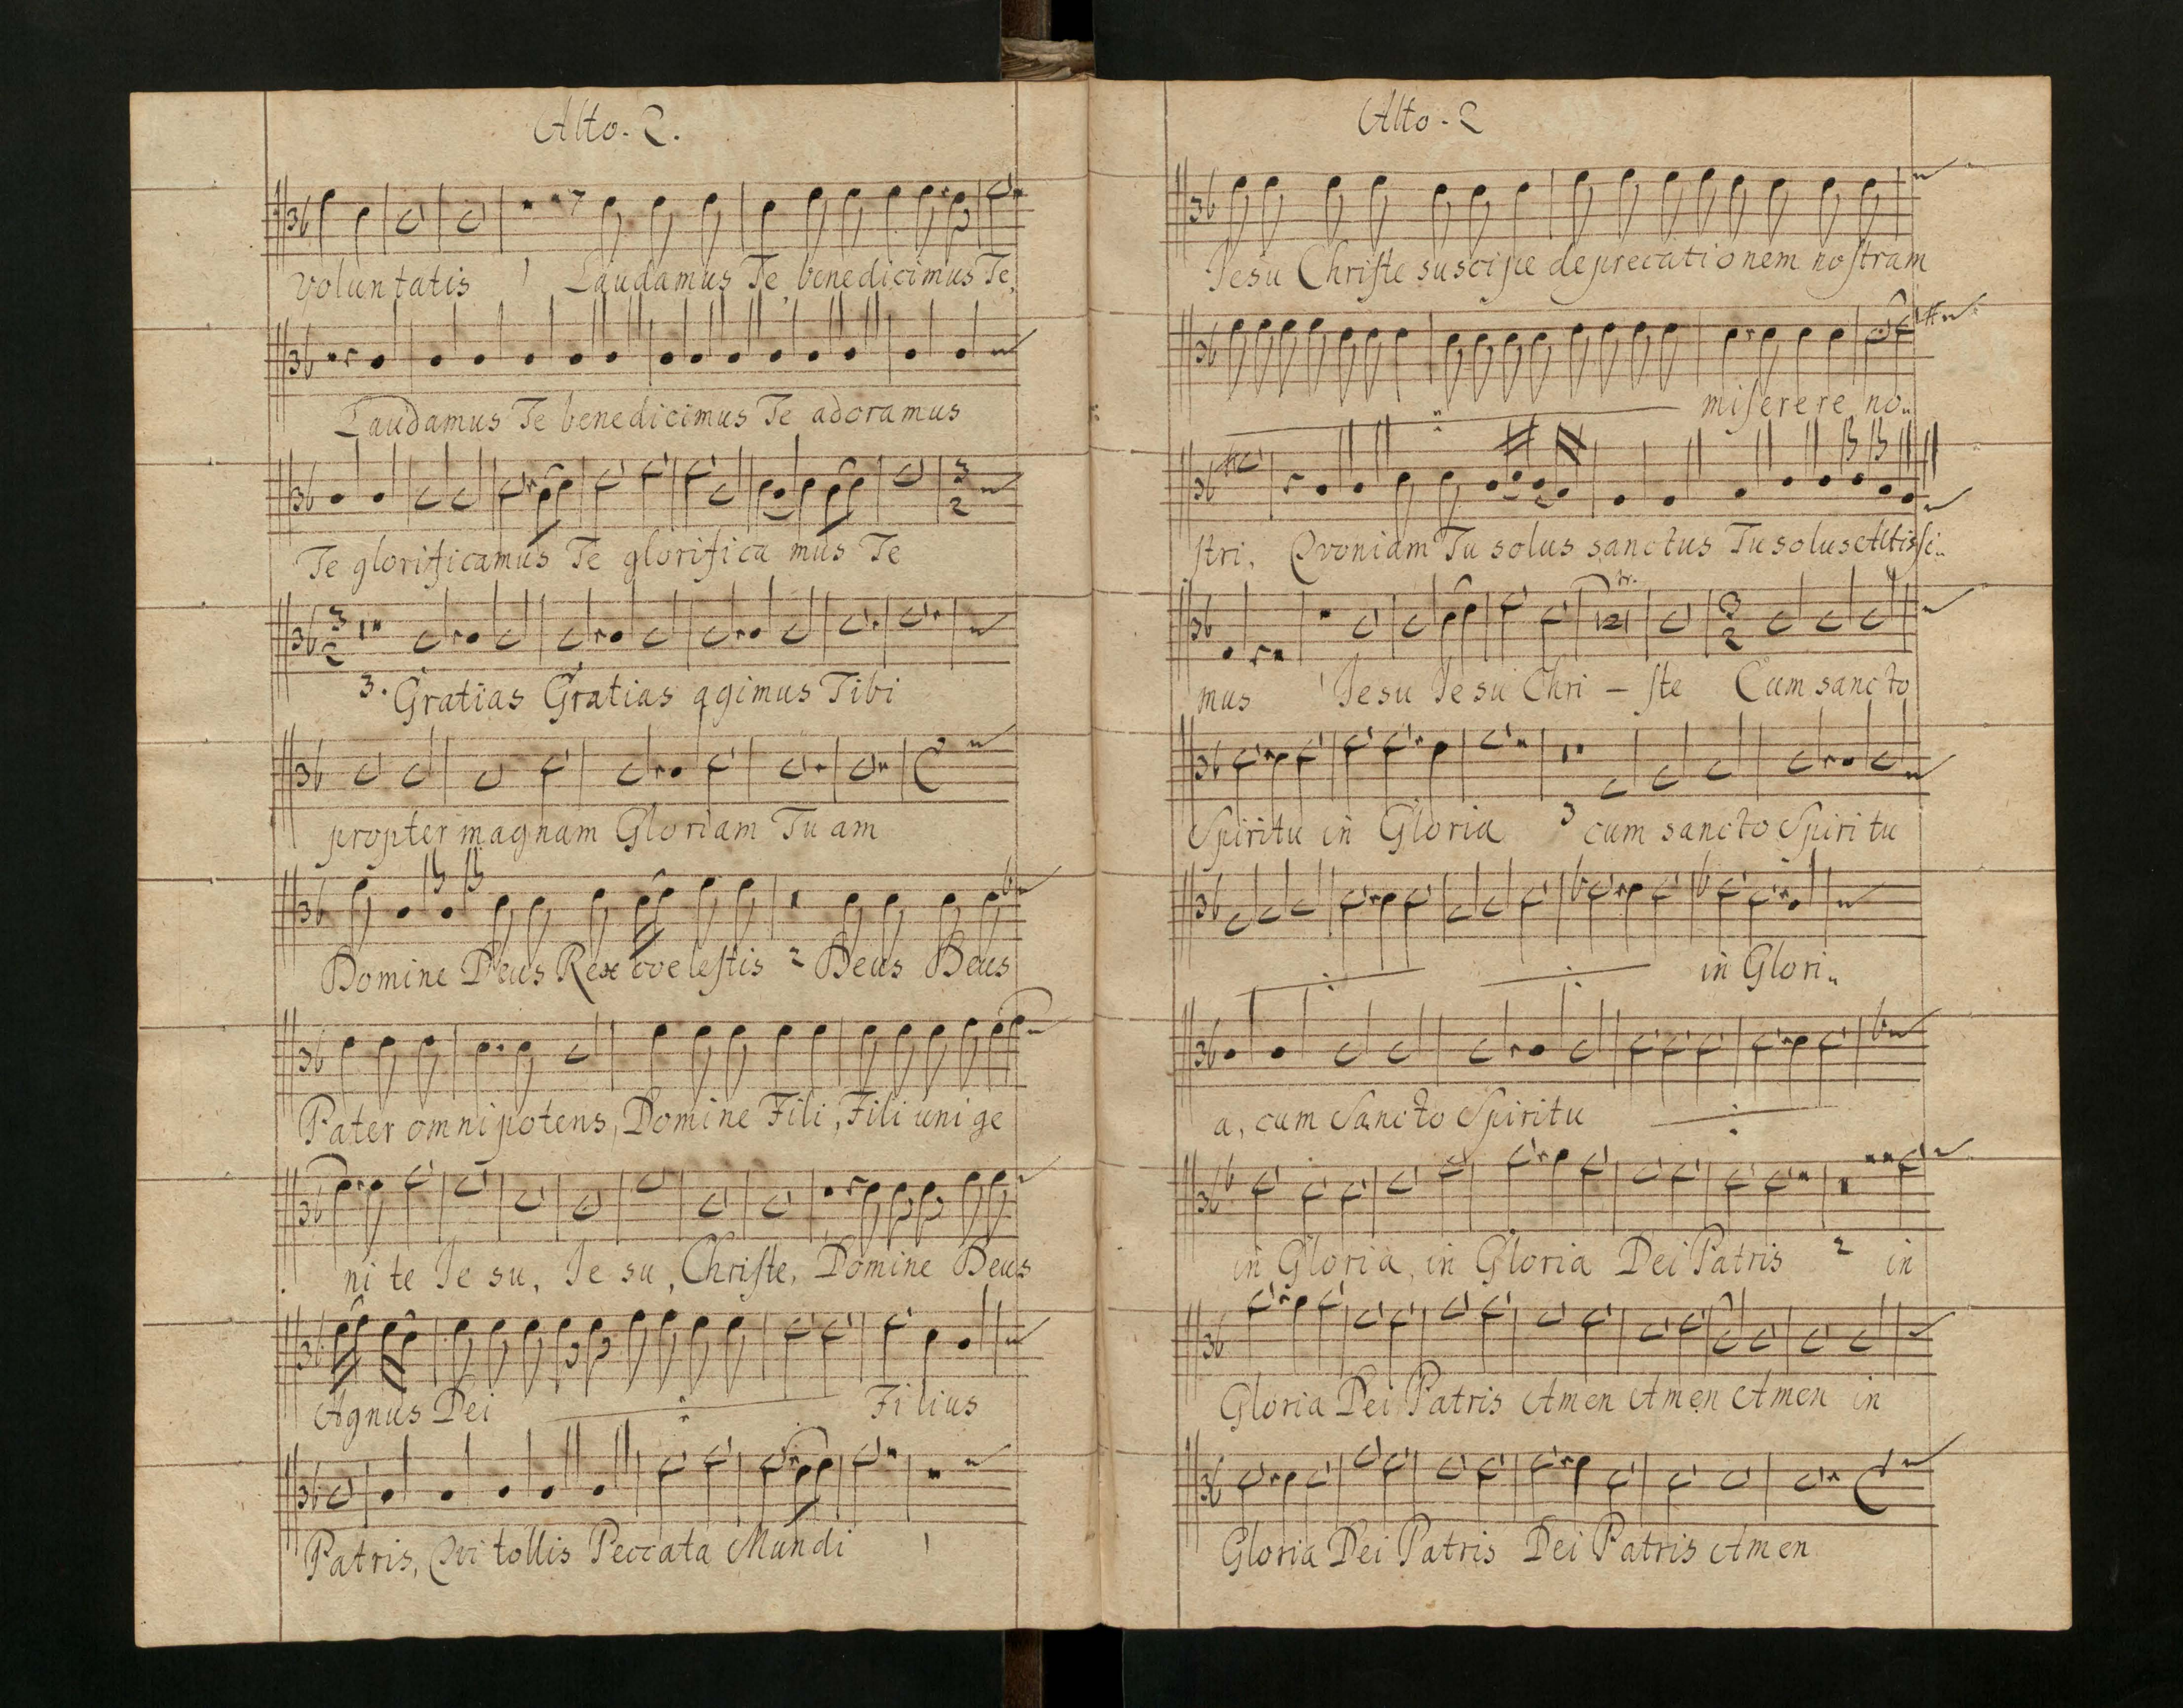 Alto. 2.
voluntatis 1 Laudamus Te, benedicimus Te,
Laudamus Te benedicimus Te adoramus
Te glorificamus Te glorificamus Te
3. Gratias Gratias agimus Tibi
propter magnam Gloriam Tuam
Domine Deus Rex coelestis 2 Deus Deus
Pater omnipotens, Domine Fili, Fili unige
nite Jesu, Jesu, Christe, Domine Deus
Agnus Dei Filius
Patris, Qvi tollis Peccata Mundi 1
Alto. 2
Jesu Christe suscipe deprecationem nostram
miserere no..
stri, Qvoniam Tu solus sanctus Tu solus Altissi..
tr.
mus 1 Jesu Jesu Chri – ste Cum sancto
Spiritu in Gloria 3 cum sancto Spiritu
in Glori..
a, cum Sancto Spiritu
in Gloria, in Gloria Dei Patris 2 in
Gloria Dei Patris Amen Amen Amen in
Gloria Dei Patris Dei Patris Amen